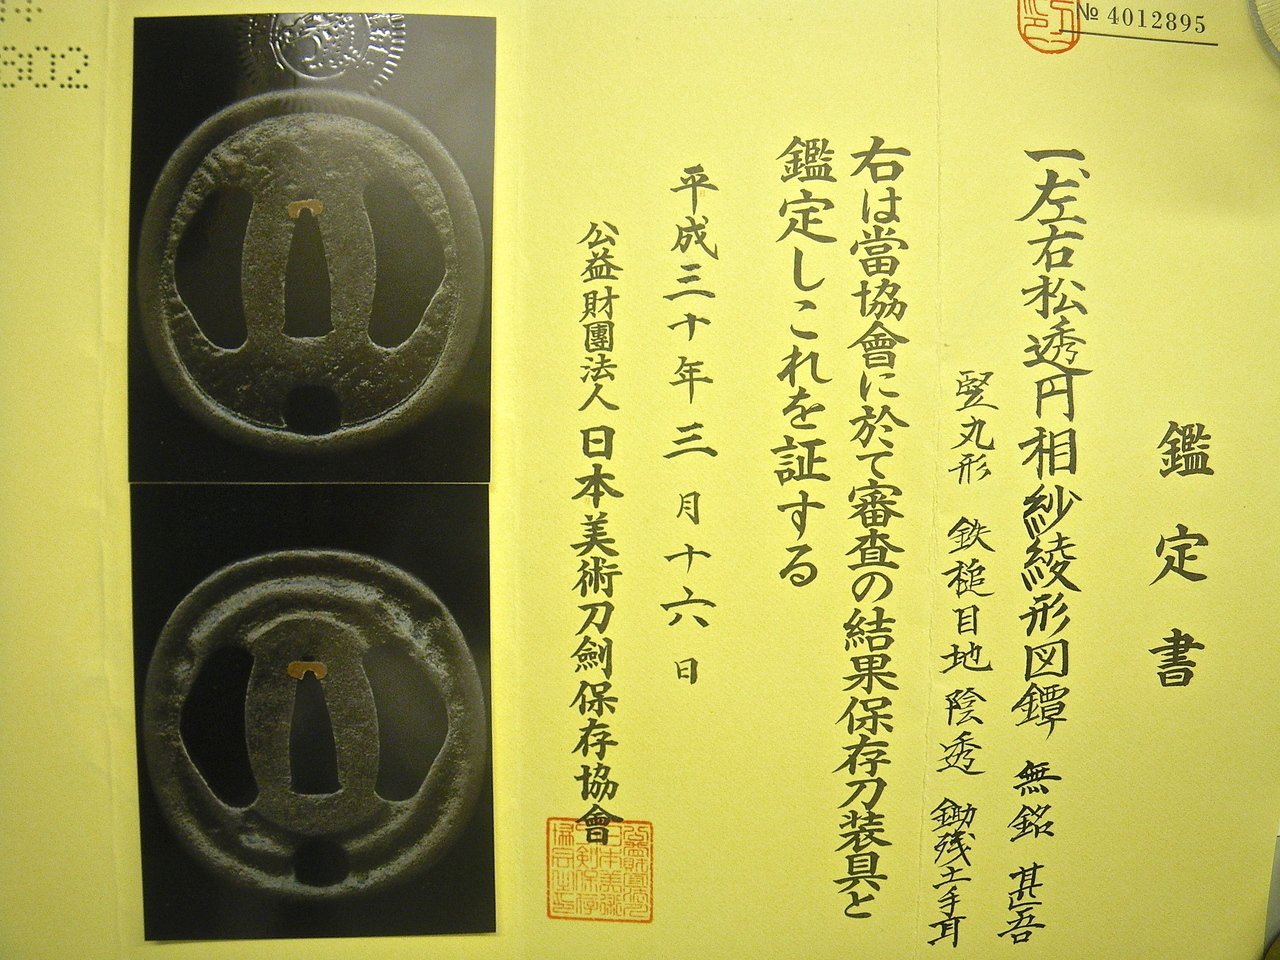 № 4012895
鑑定書
一、左右松透円相紗綾形図鐔 無銘 甚吾
竪丸形 鉄槌目地 陰透 鋤残土手耳
右は當協會に於て審査の結果保存刀装具と
鑑定しこれを証する
平成三十年三月十六日
公益財團法人 日本美術刀劍保存協會